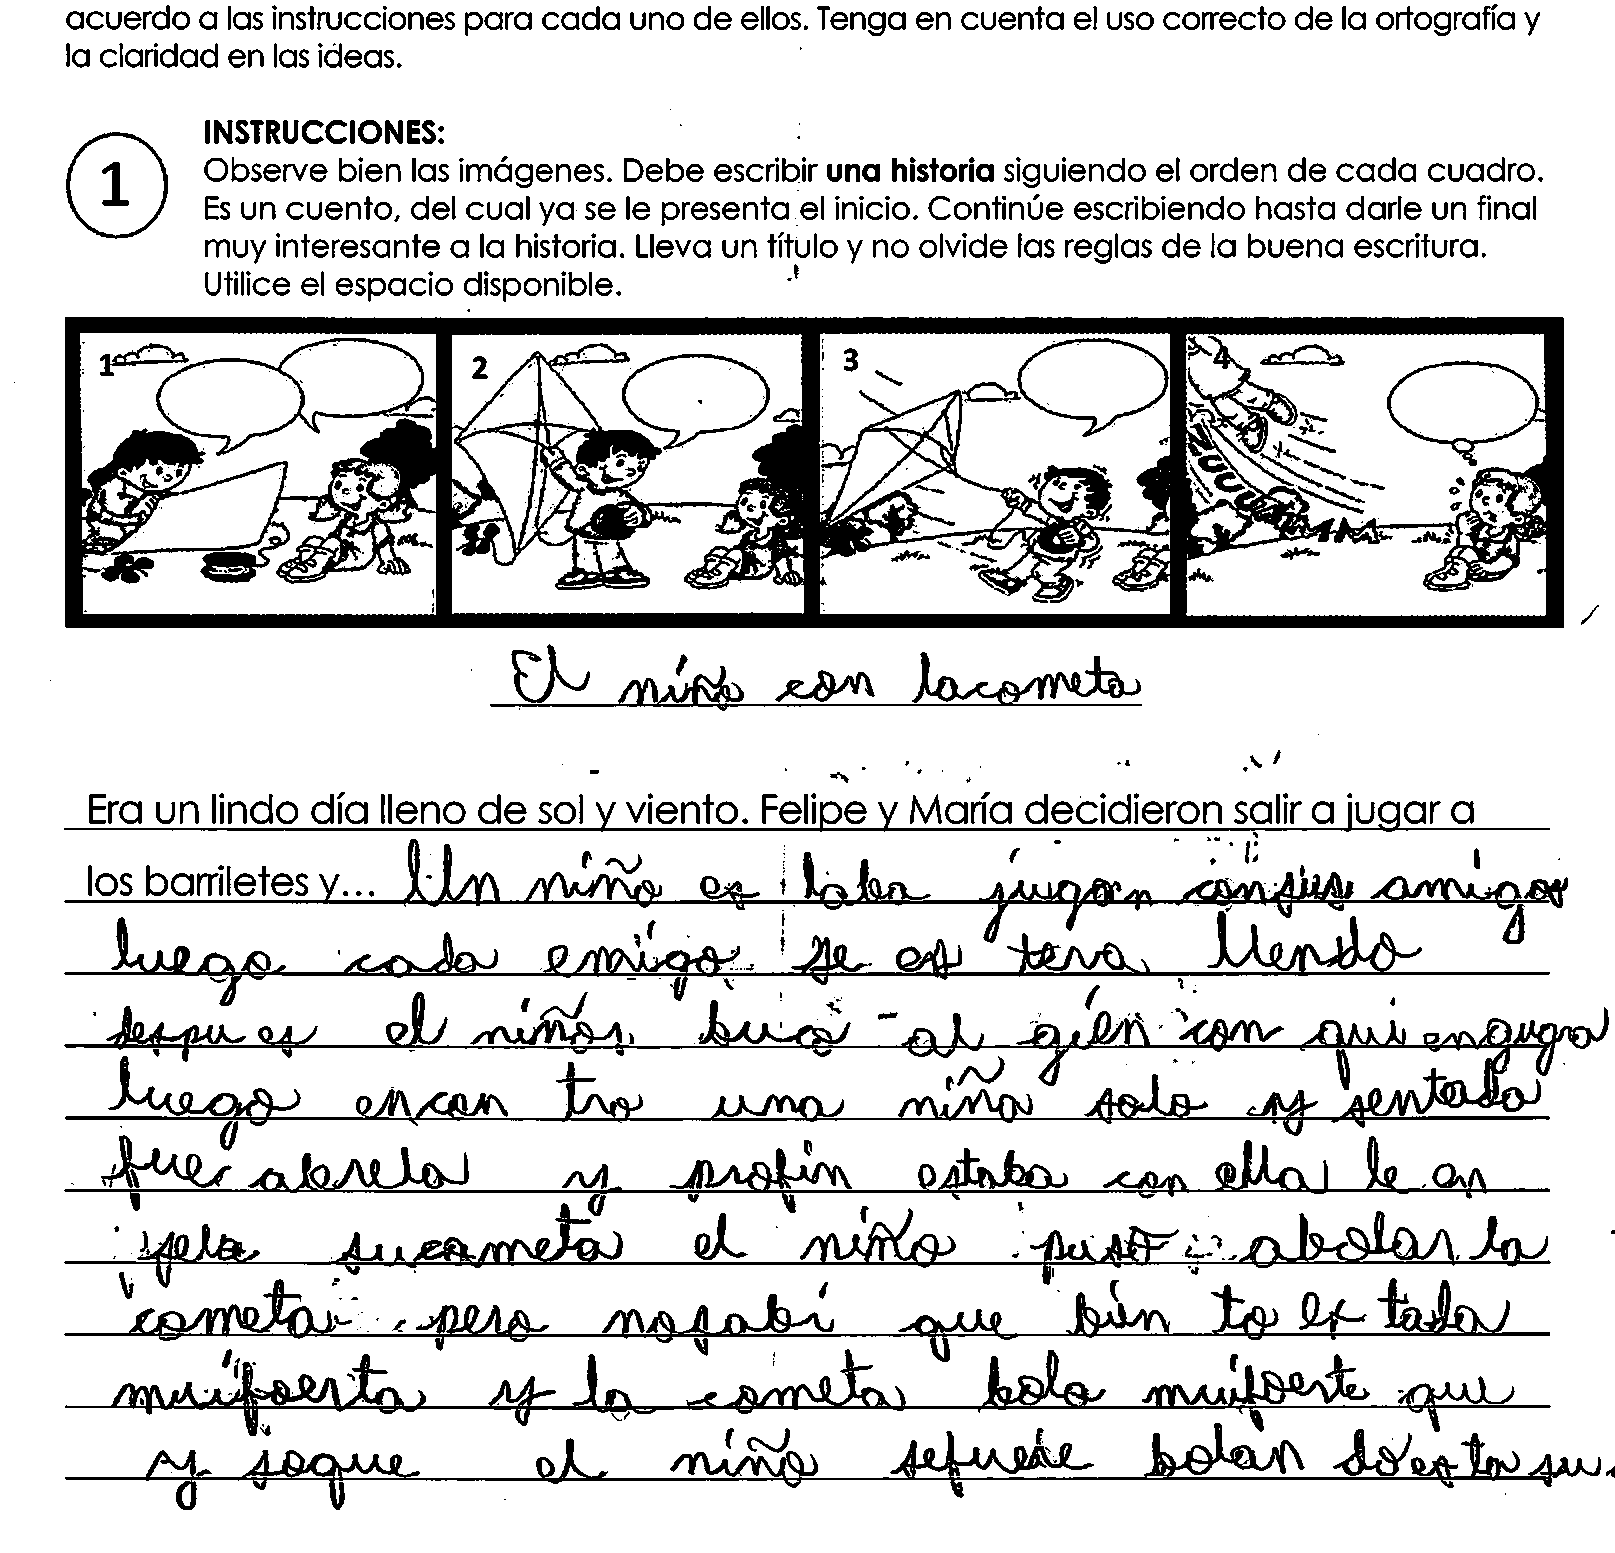 acuerdo a las instrucciones para cada uno de ellos. Tenga en cuenta el uso correcto de la ortografía y
la claridad en las ideas.
1
INSTRUCCIONES:
Observe bien las imágenes. Debe escribir una historia siguiendo el orden de cada cuadro.
Es un cuento, del cual ya se le presenta el inicio. Continúe escribiendo hasta darle un final
muy interesante a la historia. Lleva un título y no olvide las reglas de la buena escritura.
Utilice el espacio disponible.
1 2 3 4
El niño con lacometa
Era un lindo día lleno de sol y viento. Felipe y María decidieron salir a jugar a
los barriletes y... Un niño es taba jugan con sus amigos
luego cada emigo se es teva llendo
despu es el niños busco al gién con qui engugra
luego encon tro una niña sola y sentada
fue abrela y profin estaba con ella le en
sucometa el niño puso abolar la
cometa pero nosabi que bien to es tada
muifoerta y la cometa bola muifoerte que
y soque el niño sefuese bolan do es ta su